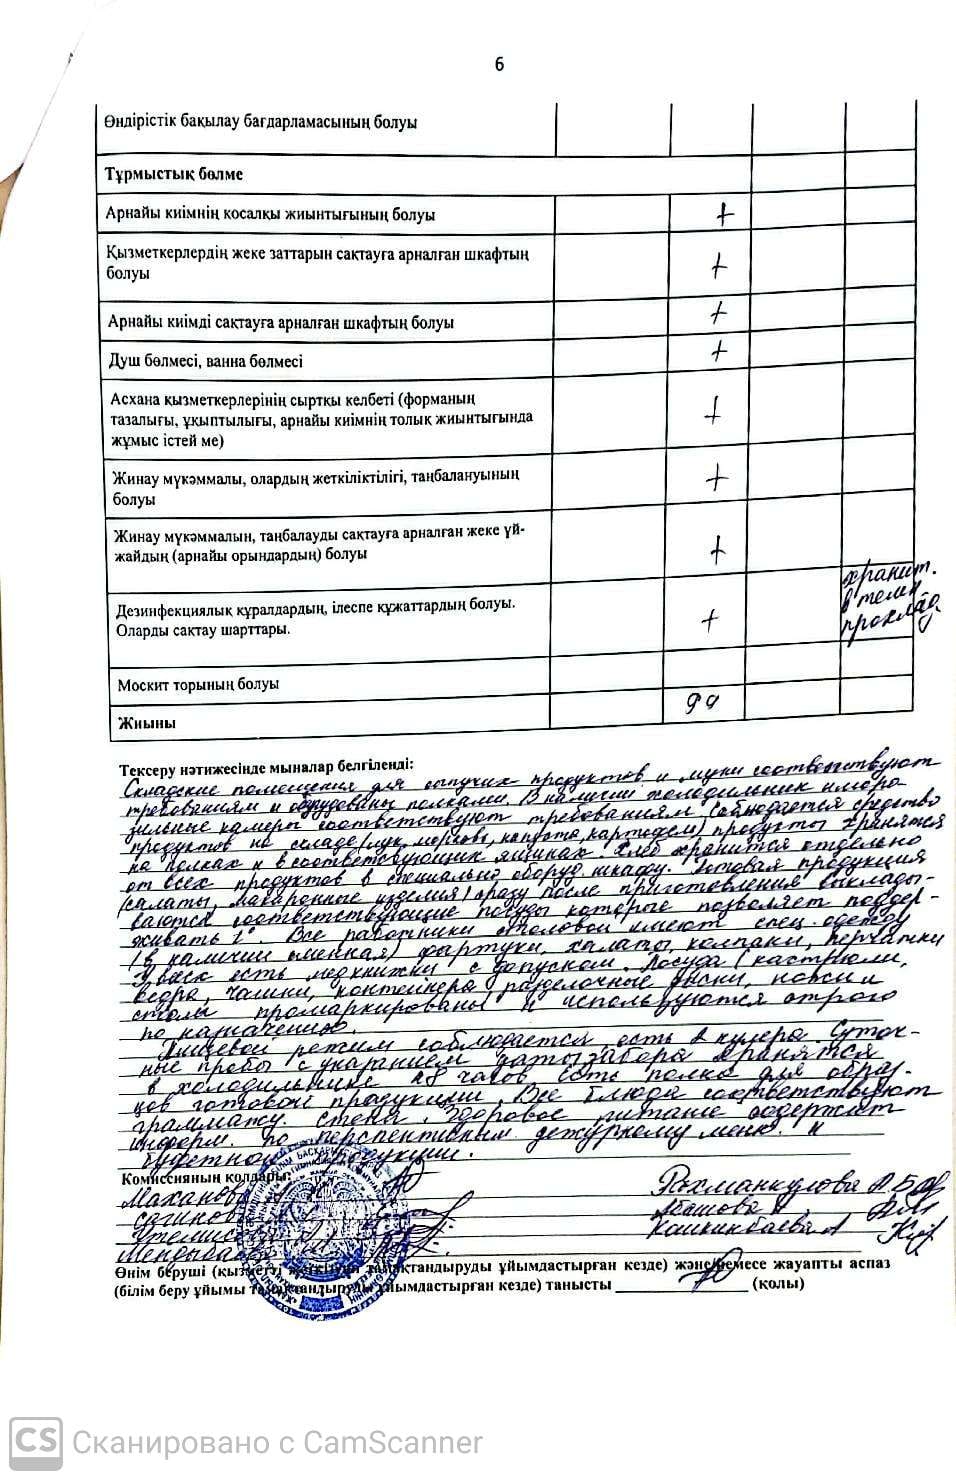 6
Өндірістік бақылау бағдарламасының болуы
Тұрмыстық бөлме
Арнайы киімнің косалқы жиынтығының болуы +
Қызметкерлердің жеке заттарын сақтауға арналған шкафтың
болуы +
Арнайы киімді сақтауға арналған шкафтың болуы +
Душ бөлмесі, ванна бөлмесі +
Асхана қызметкерлерінің сыртқы келбеті (форманың
тазалығы, ұқыптылығы, арнайы киімнің толық жиынтығында +
жұмыс істей ме)
Жинау мүкәммалы, олардың жеткіліктілігі, таңбалануының +
болуы
Жинау мүкәммалын, таңбалауды сақтауға арналған жеке үй-
жайдың (арнайы орындардың) болуы +
хранит.
в
Дезинфекциялық құралдардың, ілеспе құжаттардың болуы. +
Оларды сақтау шарттары.
Москит торының болуы
Жиыны
Тексеру нәтижесінде мыналар белгіленді:
Складские помещения для сыпучих продуктов и муки соответствуют
требованиям и оборудованы полками. В наличии холодильник и моро-
зильные камеры соответствуют требованиям соблюдается
продуктов на складе (лук, морковь, капуста, картофель) продукты хранятся
на полках и в соответствующих ящиках. Хлеб хранится отдельно
от всех продуктов в специально оборуд. шкафу. Готовая продукция
(салаты, макаронные изделия) сразу после приготовления выклады-
ваются соответствующие посуды которые позволяет поддер-
живать t°. Все работники столовой имеют спец. одежду
(в наличии сменная) фартуки, халаты, колпаки, перчатки
У всех есть мед книжки с допуском. Посуда (кастрюли,
ведра, чашки, контейнера, разделочные доски, ножи и
столы промаркированы и используются строго
по назначению.
Пищевой режим соблюдается есть 2 кулера. Суточ-
ные пробы с указанием даты забора хранятся
в холодильнике 48 часов. Есть полка для образ-
цов готовой продукции. Все блюда соответствуют
граммажу. Стенд. Здоровое питание содержит
информ. по перспективным дежурному меню. и
буфетной продукции.
Комиссияның қолдары:
Маханова Рахманкулова А.Б.
Кашкинбаева А
Өнім беруші (қызметті жеткізуші тамақтандыруды ұйымдастырған кезде) және/немесе жауапты аспаз
(білім беру ұйымы тамақтандыруды ұйымдастырған кезде) танысты ____________ (қолы)
CS Сканировано с CamScanner